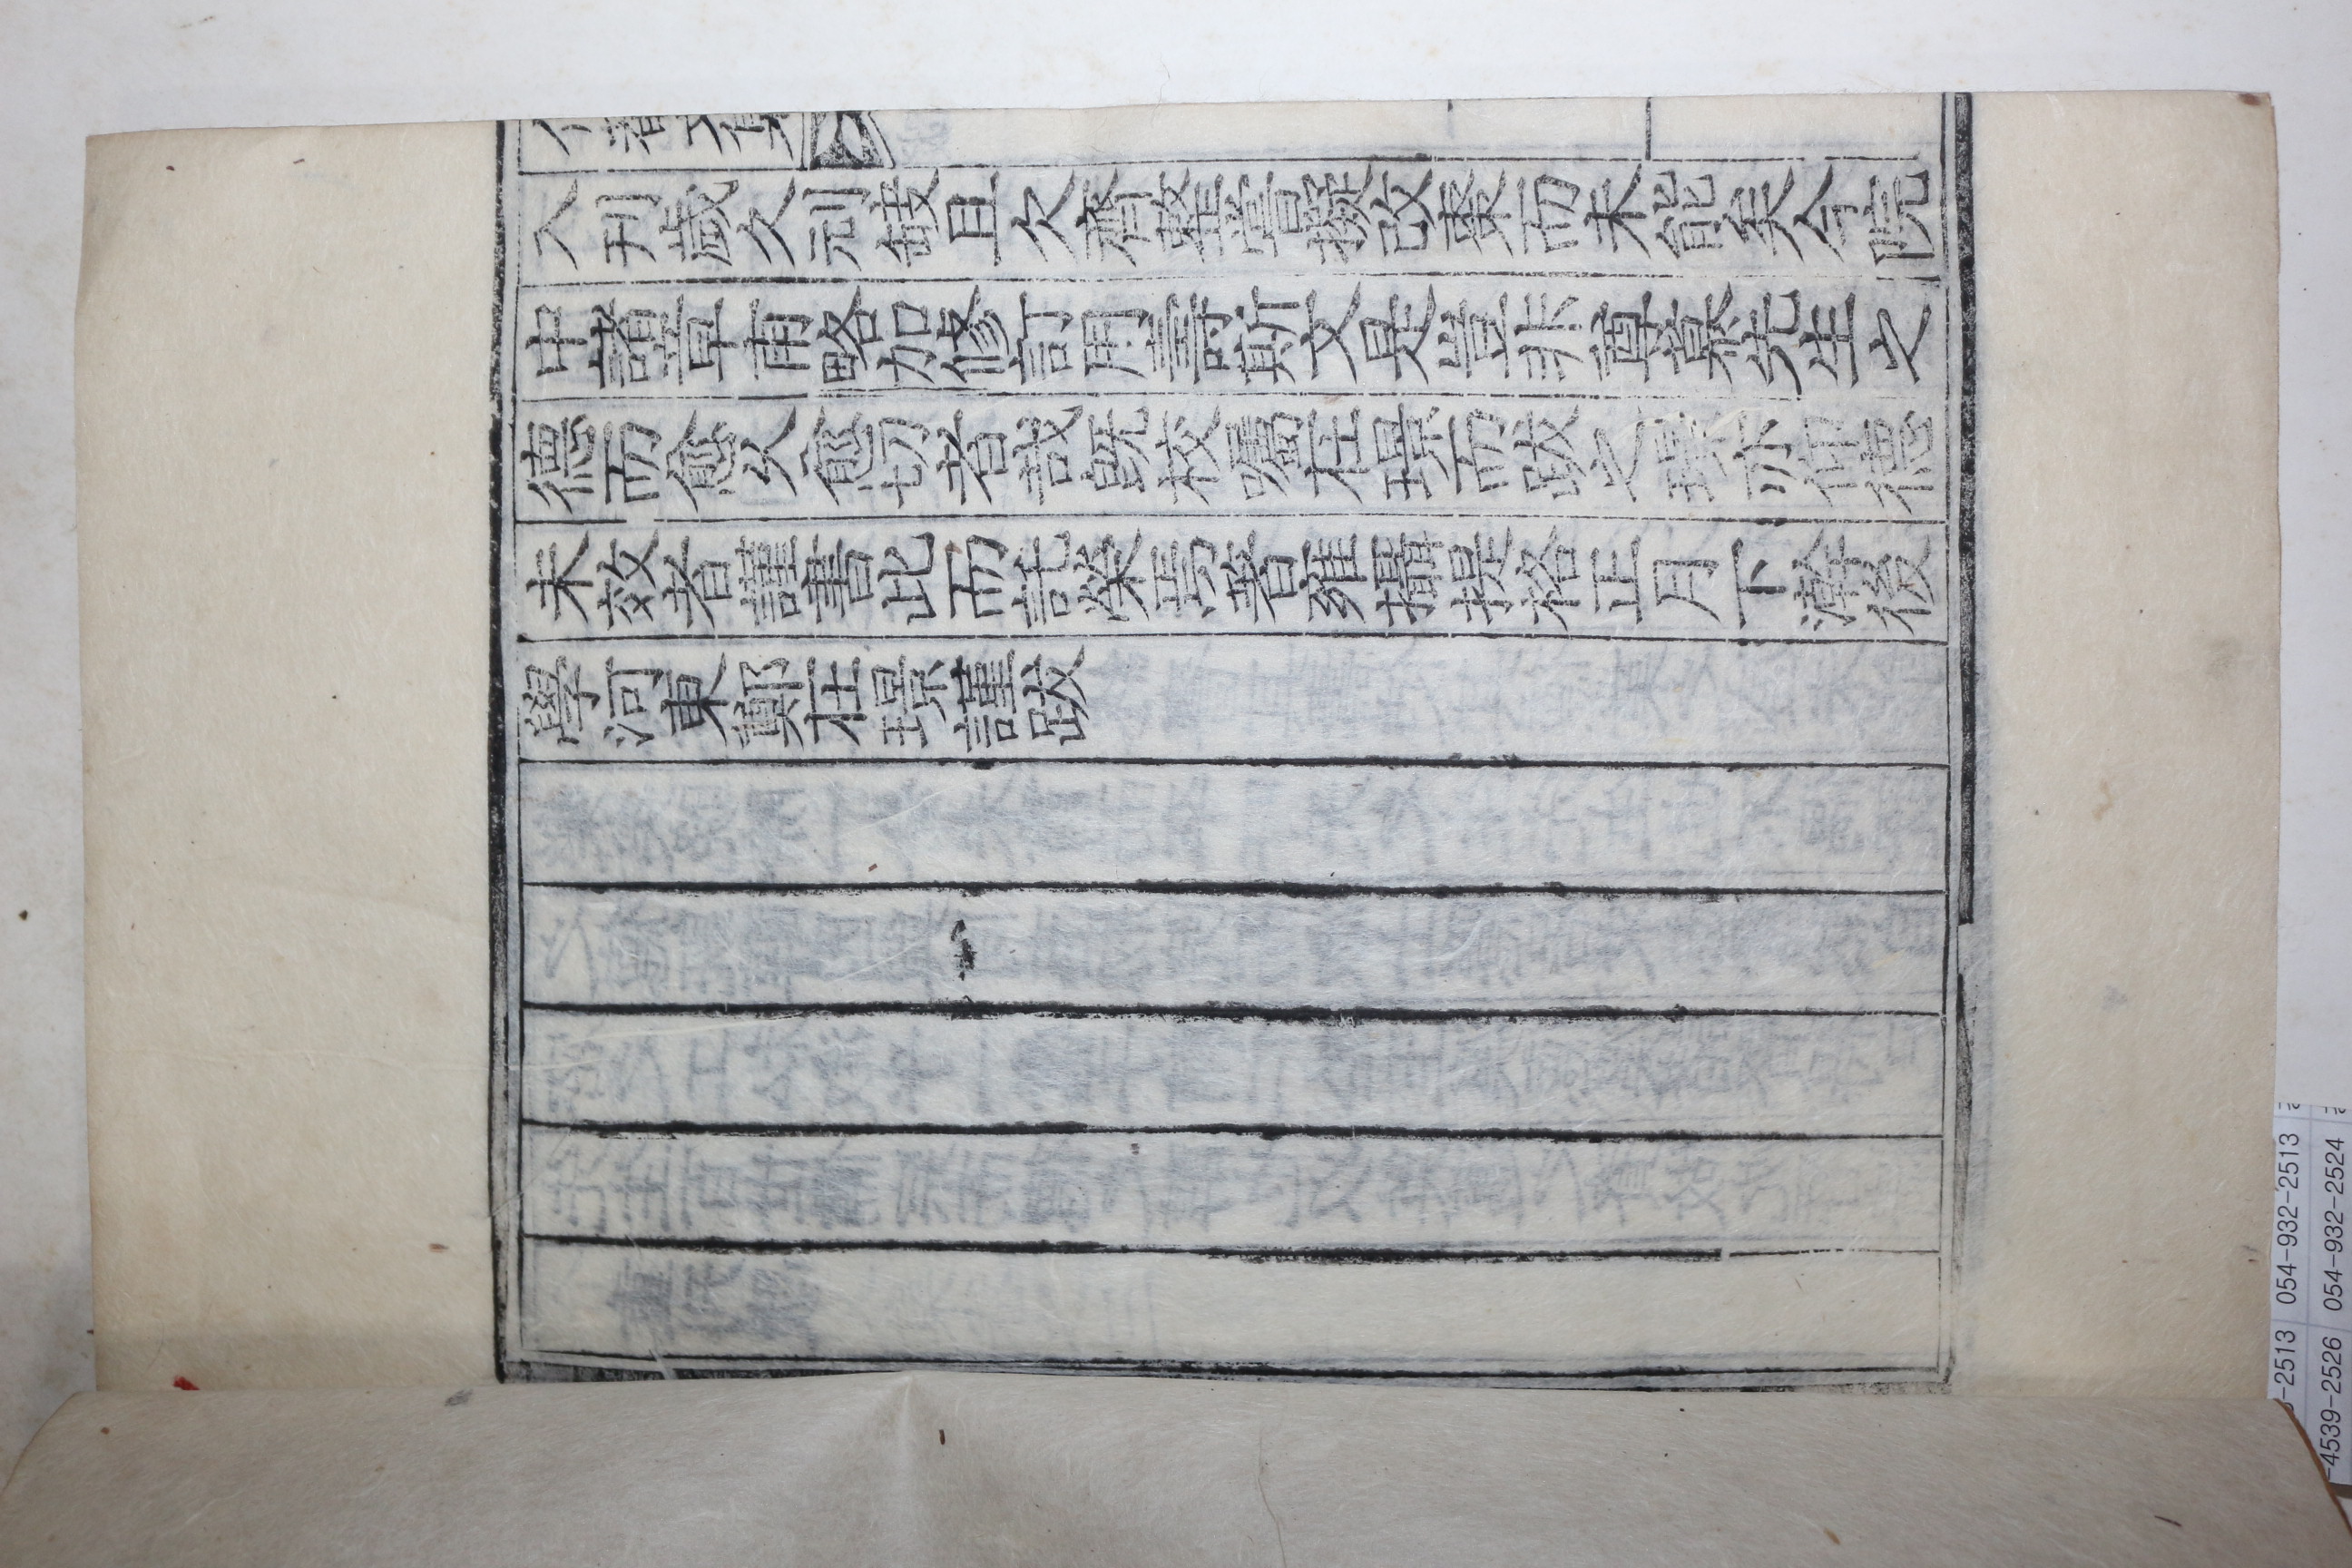 文集
入刊歲久刓缺且欠齊整嘗擬改棗而未能矣今院
中諸章甫略加修訂用壽斯文是豈非尊慕先生之
德而愈久愈切者哉旣校囑在璟而跋之璟亦仰德
未效者謹書此而託榮焉著雍攝提格正月下澣後
學河東鄭在璟謹跋
-2513 054-932-2513
-4539-2526 054-932-2524